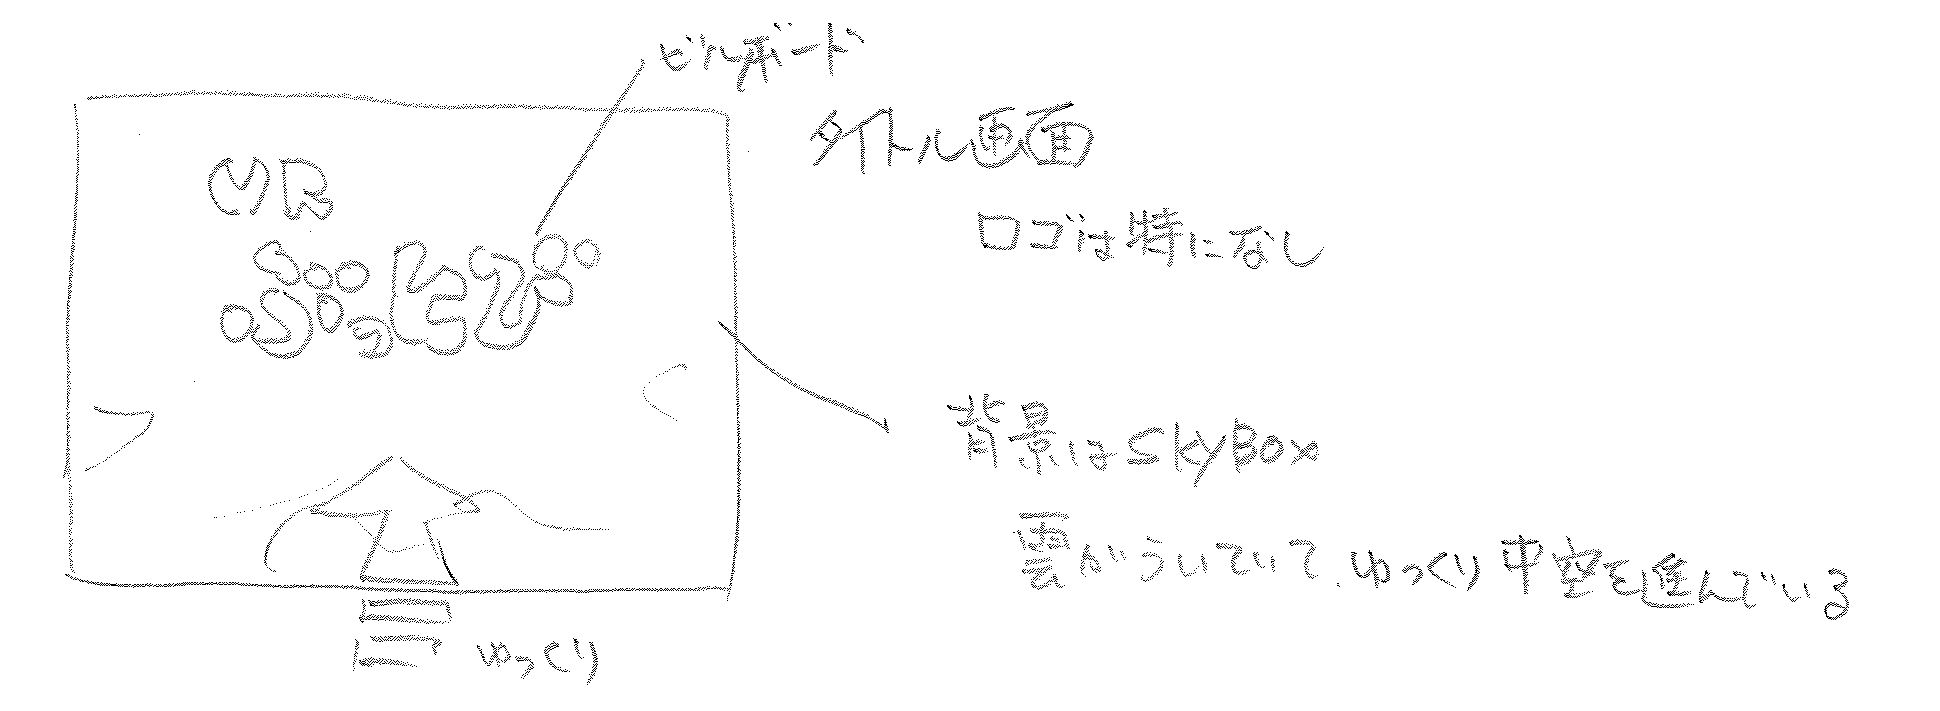 ビルボード
タイトル画面
ロゴは特になし
背景はSkyBox
雲がういていて、ゆっくり中空を進んでいる
ゆっくり